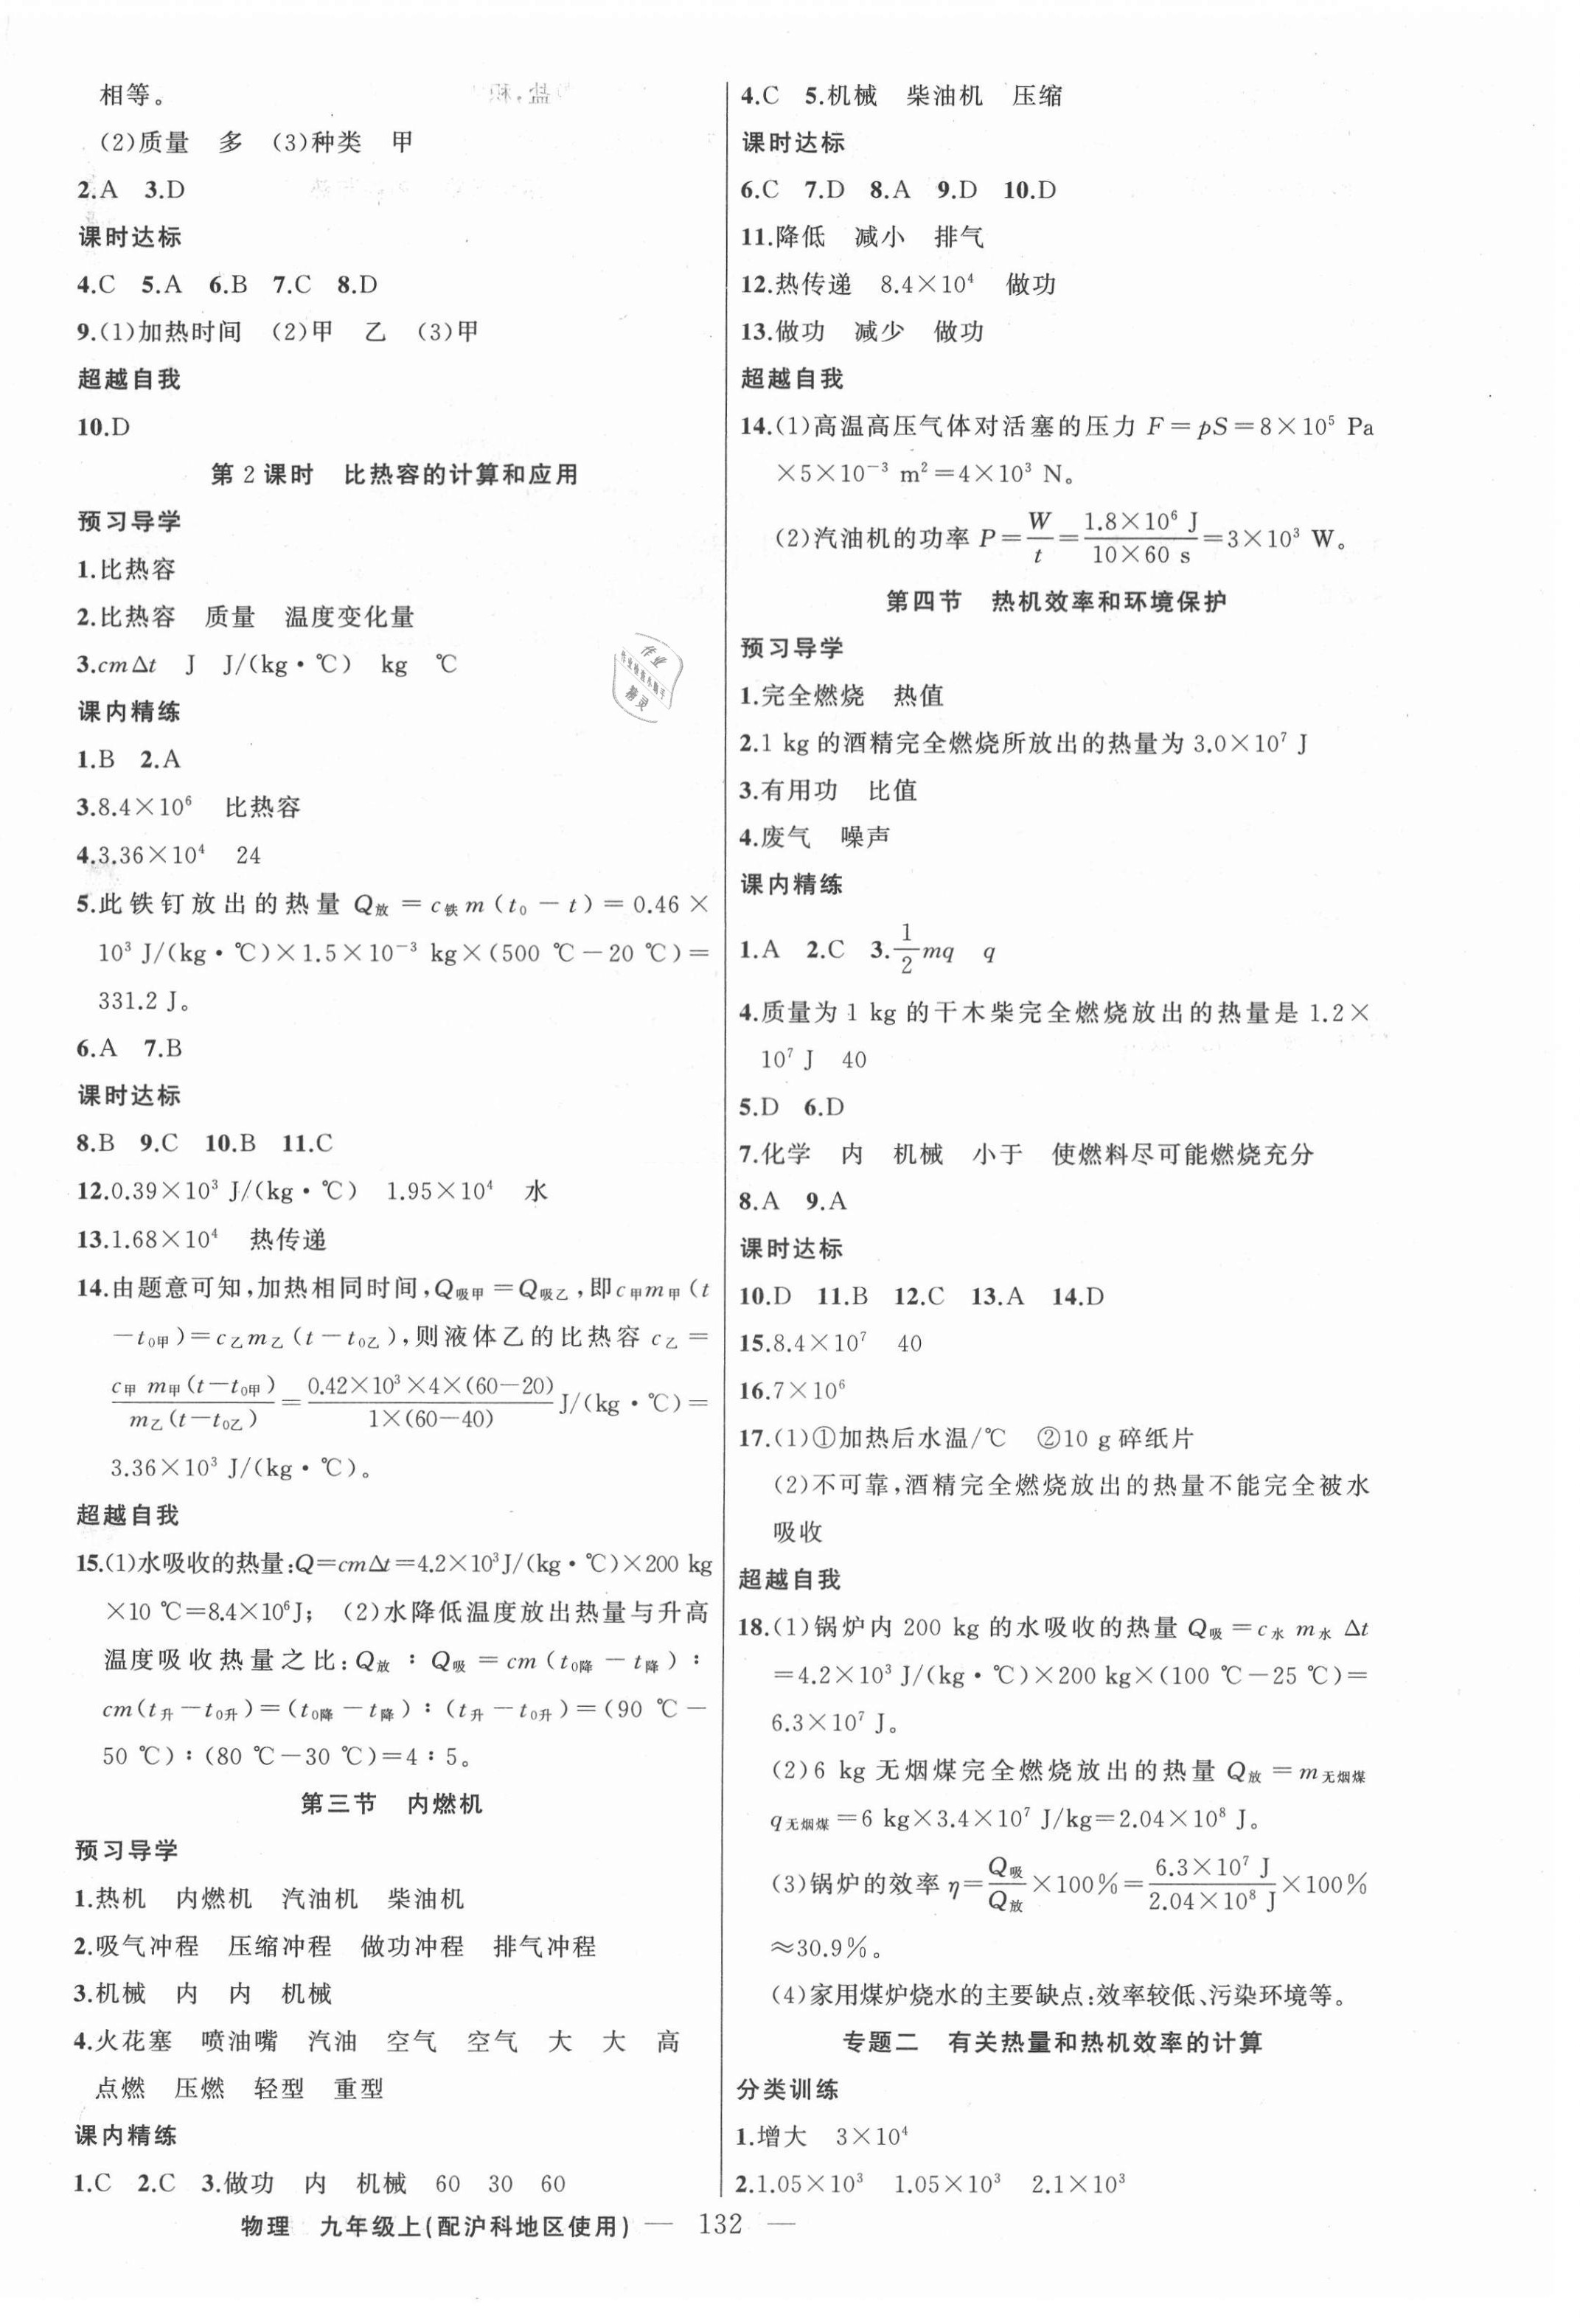 相等。
(2)质量 多 (3)种类 甲
2.A 3.D
课时达标
4.C 5.A 6.B 7.C 8.D
9.(1)加热时间 (2)甲 乙 (3)甲
超越自我
10.D
第 2 课时 比热容的计算和应用
预习导学
1.比热容
2.比热容 质量 温度变化量
3.cmΔt J J/(kg·℃) kg ℃
课内精练
1.B 2.A
3.8.4×10⁶ 比热容
4.3.36×10⁴ 24
5.此铁钉放出的热量 Q放 = c铁 m (t₀ − t) = 0.46 ×
10³ J/(kg·℃)×1.5×10⁻³ kg×(500 ℃−20 ℃)=
331.2 J。
6.A 7.B
课时达标
8.B 9.C 10.B 11.C
12.0.39×10³ J/(kg·℃) 1.95×10⁴ 水
13.1.68×10⁴ 热传递
14.由题意可知,加热相同时间,Q吸甲=Q吸乙,即c甲m甲(t
−t₀甲)=c乙m乙(t−t₀乙),则液体乙的比热容 c乙=
c甲 m甲(t−t₀甲)/m乙(t−t₀乙)=0.42×10³×4×(60−20)/1×(60−40) J/(kg·℃)=
3.36×10³ J/(kg·℃)。
超越自我
15.(1)水吸收的热量:Q=cmΔt=4.2×10³J/(kg·℃)×200 kg
×10 ℃=8.4×10⁶J; (2)水降低温度放出热量与升高
温度吸收热量之比:Q放 : Q吸 = cm (t₀降 − t降) :
cm(t升−t₀升)=(t₀降−t降):(t升−t₀升)=(90 ℃−
50 ℃):(80 ℃−30 ℃)=4:5。
第三节 内燃机
预习导学
1.热机 内燃机 汽油机 柴油机
2.吸气冲程 压缩冲程 做功冲程 排气冲程
3.机械 内 内 机械
4.火花塞 喷油嘴 汽油 空气 空气 大 大 高
点燃 压燃 轻型 重型
课内精练
1.C 2.C 3.做功 内 机械 60 30 60
4.C 5.机械 柴油机 压缩
课时达标
6.C 7.D 8.A 9.D 10.D
11.降低 减小 排气
12.热传递 8.4×10⁴ 做功
13.做功 减少 做功
超越自我
14.(1)高温高压气体对活塞的压力 F=pS=8×10⁵ Pa
×5×10⁻³ m²=4×10³ N。
(2)汽油机的功率 P=W/t=1.8×10⁶ J/10×60 s=3×10³ W。
第四节 热机效率和环境保护
预习导学
1.完全燃烧 热值
2.1 kg 的酒精完全燃烧所放出的热量为 3.0×10⁷ J
3.有用功 比值
4.废气 噪声
课内精练
1.A 2.C 3.1/2mq q
4.质量为 1 kg 的干木柴完全燃烧放出的热量是 1.2×
10⁷ J 40
5.D 6.D
7.化学 内 机械 小于 使燃料尽可能燃烧充分
8.A 9.A
课时达标
10.D 11.B 12.C 13.A 14.D
15.8.4×10⁷ 40
16.7×10⁶
17.(1)①加热后水温/℃ ②10 g 碎纸片
(2)不可靠,酒精完全燃烧放出的热量不能完全被水
吸收
超越自我
18.(1)锅炉内 200 kg 的水吸收的热量 Q吸=c水 m水 Δt
=4.2×10³ J/(kg·℃)×200 kg×(100 ℃−25 ℃)=
6.3×10⁷ J。
(2)6 kg 无烟煤完全燃烧放出的热量 Q放=m无烟煤
q无烟煤=6 kg×3.4×10⁷ J/kg=2.04×10⁸ J。
(3)锅炉的效率 η=Q吸/Q放×100%=6.3×10⁷ J/2.04×10⁸ J×100%
≈30.9%。
(4)家用煤炉烧水的主要缺点:效率较低、污染环境等。
专题二 有关热量和热机效率的计算
分类训练
1.增大 3×10⁴
2.1.05×10³ 1.05×10³ 2.1×10³
物理 九年级上(配沪科地区使用) — 132 —
作业
精灵